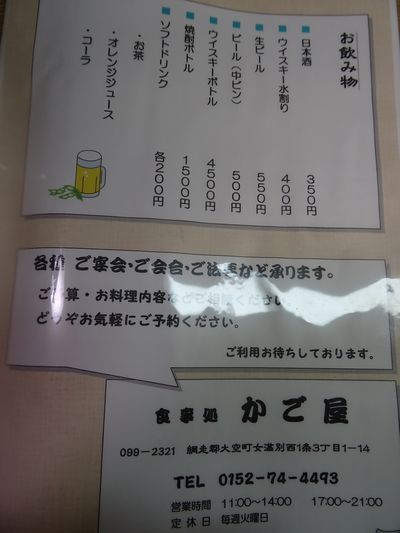 お飲み物
■日本酒 350円
■ウイスキー水割り 400円
■生ビール 550円
■ビール（中ビン） 500円
■ウイスキーボトル 4500円
■焼酎ボトル 1500円
■ソフトドリンク 各200円
・お茶
・オレンジジュース
・コーラ
各種 ご宴会・ご会合・ご法要など承ります。
ご予算・お料理内容などご相談ください。
どうぞお気軽にご予約ください。
ご利用お待ちしております。
食事処 かご屋
099-2321 網走郡大空町女満別西1条3丁目1-14
TEL 0152-74-4493
営業時間 11:00〜14:00 17:00〜21:00
定休日 毎週火曜日